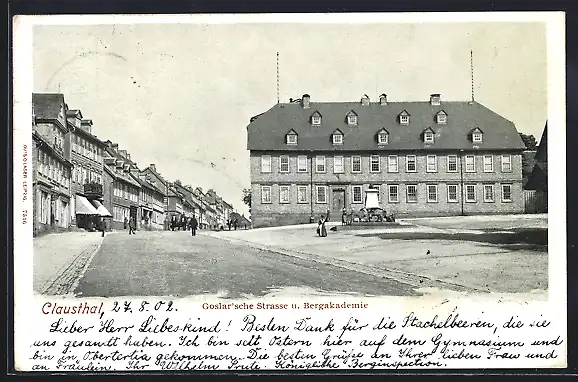 OTTO SLAGER LEIPZIG. 7256
Clausthal, 27. 8. 02.
Goslar'sche Strasse u. Bergakademie
Lieber Herr Liebeskind! Besten Dank für die Stachelbeeren, die sie
uns gesantt haben. Ich bin seit Ostern hier auf dem Gymnasium und
bin in Obertertia gekommen. Die besten Grüße an Ihrer lieben Frau und
an Fräulein. Ihr Wilhelm Königliche Berginspection.